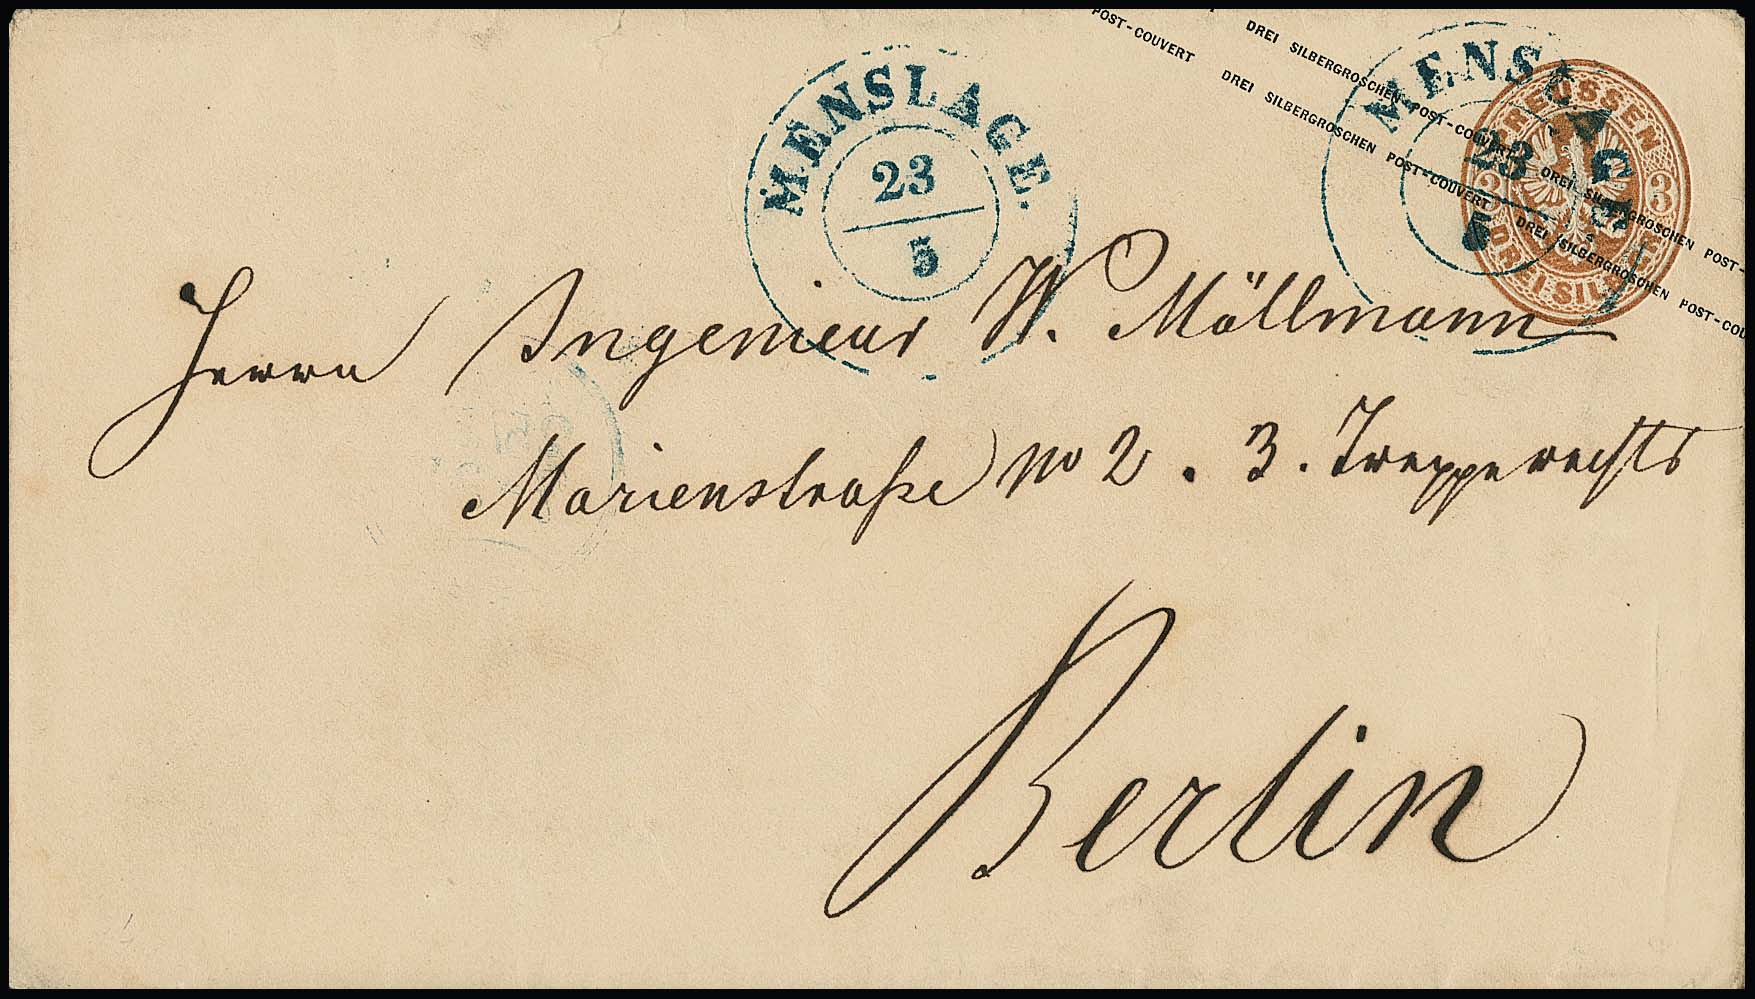 POST-COUVERT DREI SILBERGROSCHEN POST-COUVERT DREI SILBERGROSCHEN POST-COUV
DREI SILBERGROSCHEN POST-COUVERT DREI SILBERGROSCHEN POST-
MENSLAGE.
23
5
MENSLAGE
23
5
PREUSSEN
3 3
DREI SILB
Herrn Ingenieur W. Möllmann
Marienstraße No 2 . 3. Treppe rechts
Berlin